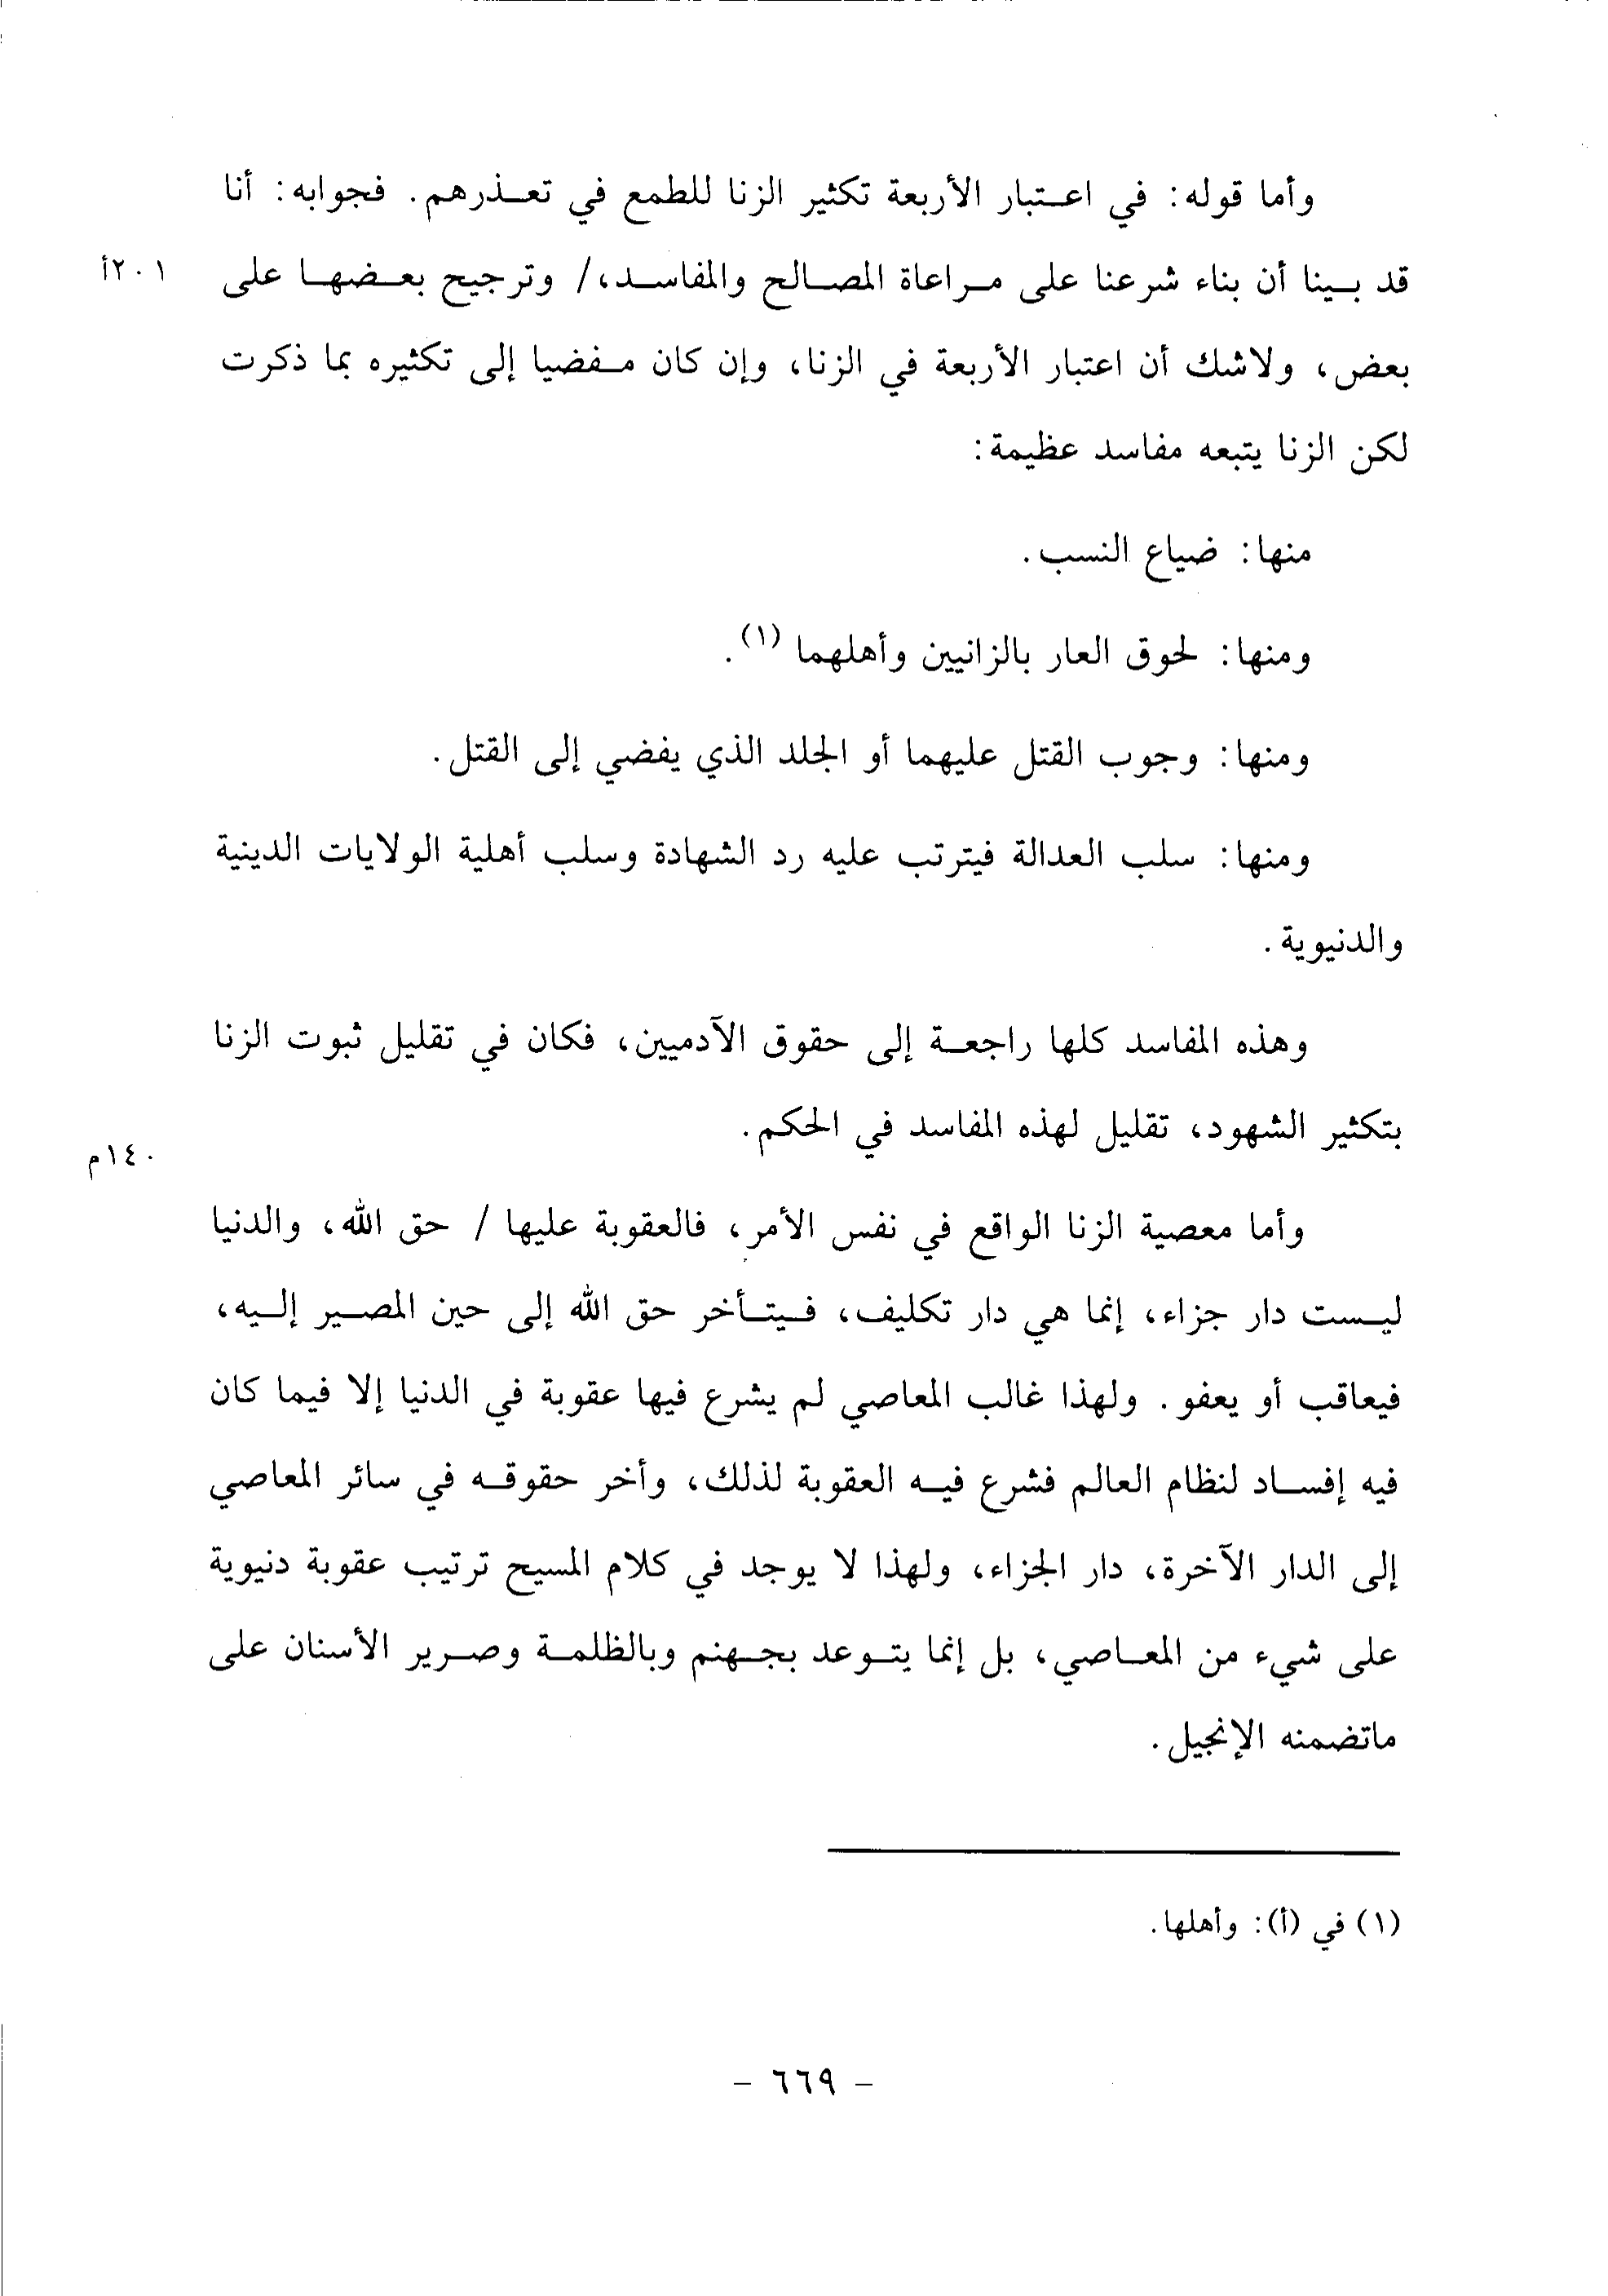 وأما قوله: في اعتبار الأربعة تكثير الزنا للطمع في تعذرهم. فجوابه: أنا
قد بينا أن بناء شرعنا على مراعاة المصالح والمفاسد،/ وترجيح بعضها على
٢٠١أ
بعض، ولاشك أن اعتبار الأربعة في الزنا، وإن كان مفضيا إلى تكثيره بما ذكرت
لكن الزنا يتبعه مفاسد عظيمة:
منها: ضياع النسب.
ومنها: لحوق العار بالزانيين وأهلهما (١).
ومنها: وجوب القتل عليهما أو الجلد الذي يفضي إلى القتل.
ومنها: سلب العدالة فيترتب عليه رد الشهادة وسلب أهلية الولايات الدينية
والدنيوية.
وهذه المفاسد كلها راجعة إلى حقوق الآدميين، فكان في تقليل ثبوت الزنا
بتكثير الشهود، تقليل لهذه المفاسد في الحكم.
١٤٠م
وأما معصية الزنا الواقع في نفس الأمر، فالعقوبة عليها / حق الله، والدنيا
ليست دار جزاء، إنما هي دار تكليف، فيتأخر حق الله إلى حين المصير إليه،
فيعاقب أو يعفو. ولهذا غالب المعاصي لم يشرع فيها عقوبة في الدنيا إلا فيما كان
فيه إفساد لنظام العالم فشرع فيه العقوبة لذلك، وأخر حقوقه في سائر المعاصي
إلى الدار الآخرة، دار الجزاء، ولهذا لا يوجد في كلام المسيح ترتيب عقوبة دنيوية
على شيء من المعاصي، بل إنما يتوعد بجهنم وبالظلمة وصرير الأسنان على
ماتضمنه الإنجيل.
(١) في (أ): وأهلها.
- ٦٦٩ -